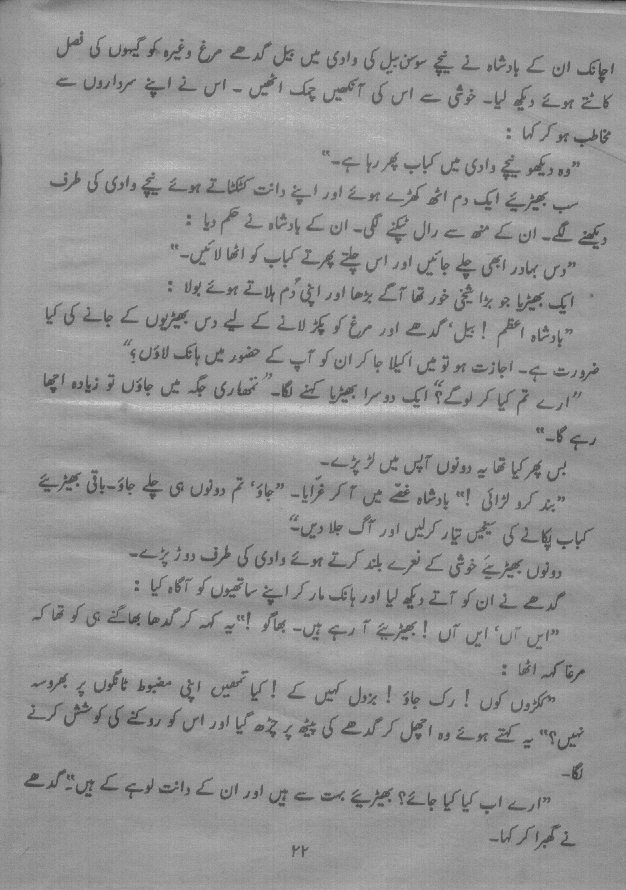 اچانک ان کے بادشاہ نے نیچے سوسن بیل کی وادی میں بیل گدھے مرغ وغیرہ کو گیہوں کی فصل
کاٹتے ہوئے دیکھ لیا۔ خوشی سے اس کی آنکھیں چمک اٹھیں ۔ اس نے اپنے سرداروں سے
مخاطب ہو کر کہا :
”وہ دیکھو نیچے وادی میں کباب پھر رہا ہے۔“
سب بھیڑیئے ایک دم اٹھ کھڑے ہوئے اور اپنے دانت کٹکٹاتے ہوئے نیچے وادی کی طرف
دیکھنے لگے۔ ان کے منھ سے رال ٹپکنے لگی۔ ان کے بادشاہ نے حکم دیا :
”دس بہادر ابھی چلے جائیں اور اس چلتے پھرتے کباب کو اٹھا لائیں۔“
ایک بھیڑیا جو بڑا شیخی خور تھا آگے بڑھا اور اپنی دُم ہلاتے ہوئے بولا :
”بادشاہ اعظم ! بیل‘ گدھے اور مرغ کو پکڑ لانے کے لیے دس بھیڑیوں کے جانے کی کیا
ضرورت ہے۔ اجازت ہو تو میں اکیلا جا کر ان کو آپ کے حضور میں ہانک لاؤں؟“
”ارے تم کیا کر لوگے؟“ ایک دوسرا بھیڑیا کہنے لگا۔ ”تمھاری جگہ میں جاؤں تو زیادہ اچھا
رہے گا۔“
بس پھر کیا تھا یہ دونوں آپس میں لڑ پڑے۔
”بند کرو لڑائی !“ بادشاہ غصّے میں آ کر غرّایا۔ ”جاؤ‘ تم دونوں ہی چلے جاؤ۔ باقی بھیڑیئے
کباب پکانے کی سیخیں تیار کرلیں اور آگ جلا دیں۔“
دونوں بھیڑیئے خوشی کے نعرے بلند کرتے ہوئے وادی کی طرف دوڑ پڑے۔
گدھے نے ان کو آتے دیکھ لیا اور ہانک مار کر اپنے ساتھیوں کو آگاہ کیا :
”ایں آں‘ ایں آں ! بھیڑیئے آ رہے ہیں۔ بھاگو !“ یہ کہہ کر گدھا بھاگنے ہی کو تھا کہ
مرغا کہہ اٹھا :
”ککڑوں کوں ! رک جاؤ ! بزدل کہیں کے ! کیا تمھیں اپنی مضبوط ٹانگوں پر بھروسہ
نہیں؟“ یہ کہتے ہوئے وہ اچھل کر گدھے کی پیٹھ پر چڑھ گیا اور اس کو روکنے کی کوشش کرنے
لگا۔
”ارے اب کیا کیا جائے؟ بھیڑیئے بہت سے ہیں اور ان کے دانت لوہے کے ہیں۔“ گدھے
نے گھبرا کر کہا۔
۲۲